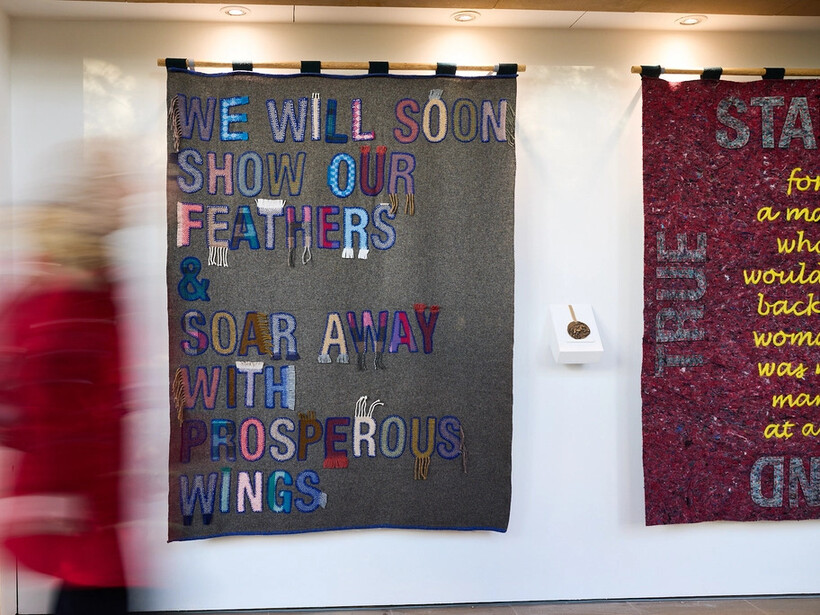 WE WiLL SOON
SHOW OUR
FEATHERS
&
SOAR AWAY
WITH
PROSPEROUS
WiNGS
STA
TRUE
for
a ma
who
would
back
woma
was
man
at a
ND